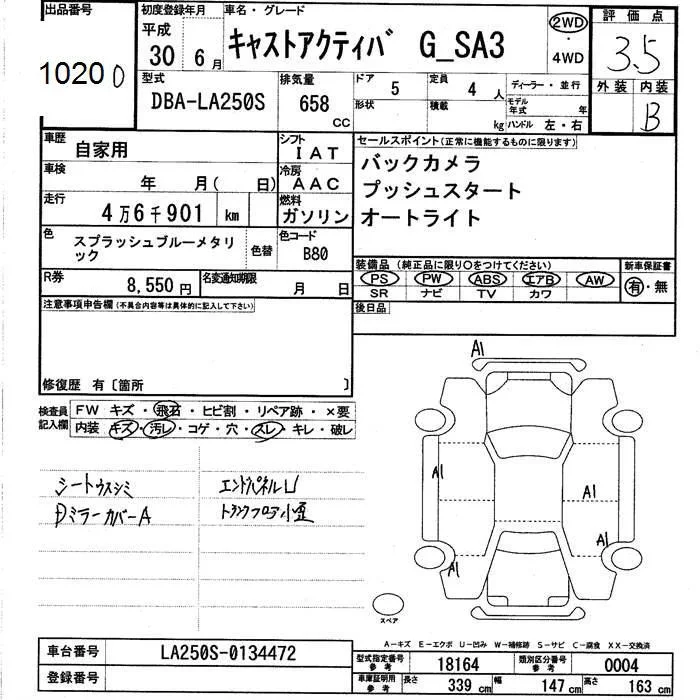 出品番号
1020 D
初度登録年月
平成
30 6月
車名・グレード
キャストアクティバ G_SA3
2WD
・
4WD
評価点
3.5
外装 内装
B
型式
DBA-LA250S
排気量
658
CC
ドア
5
定員
4 人
形状
積載
kg
ディーラー・並行
モデル年式 年
ハンドル 左・右
車歴
自家用
シフト
IAT
車検
年 月( 日)
冷房
AAC
走行
4万6千901 km
燃料
ガソリン
色
スプラッシュブルーメタリ
ック
色替
色コード
B80
R券
8,550円
名変通知期限
月 日
セールスポイント(正常に機能するものに限ります)
バックカメラ
プッシュスタート
オートライト
装備品 (純正品に限り○をつけてください)
PS PW ABS エアB AW
SR ナビ TV カワ
新車保証書
有・無
後日品
注意事項申告欄(不具合内容等は具体的に記入して下さい)
修復歴 有〔箇所 〕
検査員
記入欄
FW キズ・飛石・ヒビ割・リペア跡・×要
内装 キズ・汚レ・コゲ・穴・スレ・キレ・破レ
シートウスシミ
Dミラーカバー A
エンドパネル U
トランクフロア小歪
A1
A1
A1
A1
A1
スペア
A-キズ E-エクボ U-凹み W-補修跡 S-サビ C-腐食 XX-交換済
車台番号
LA250S-0134472
登録番号
型式指定番号
参考
18164
類別区分番号
参考
0004
車庫証明用
参考
長さ 339 cm
幅 147 cm
高さ 163 cm